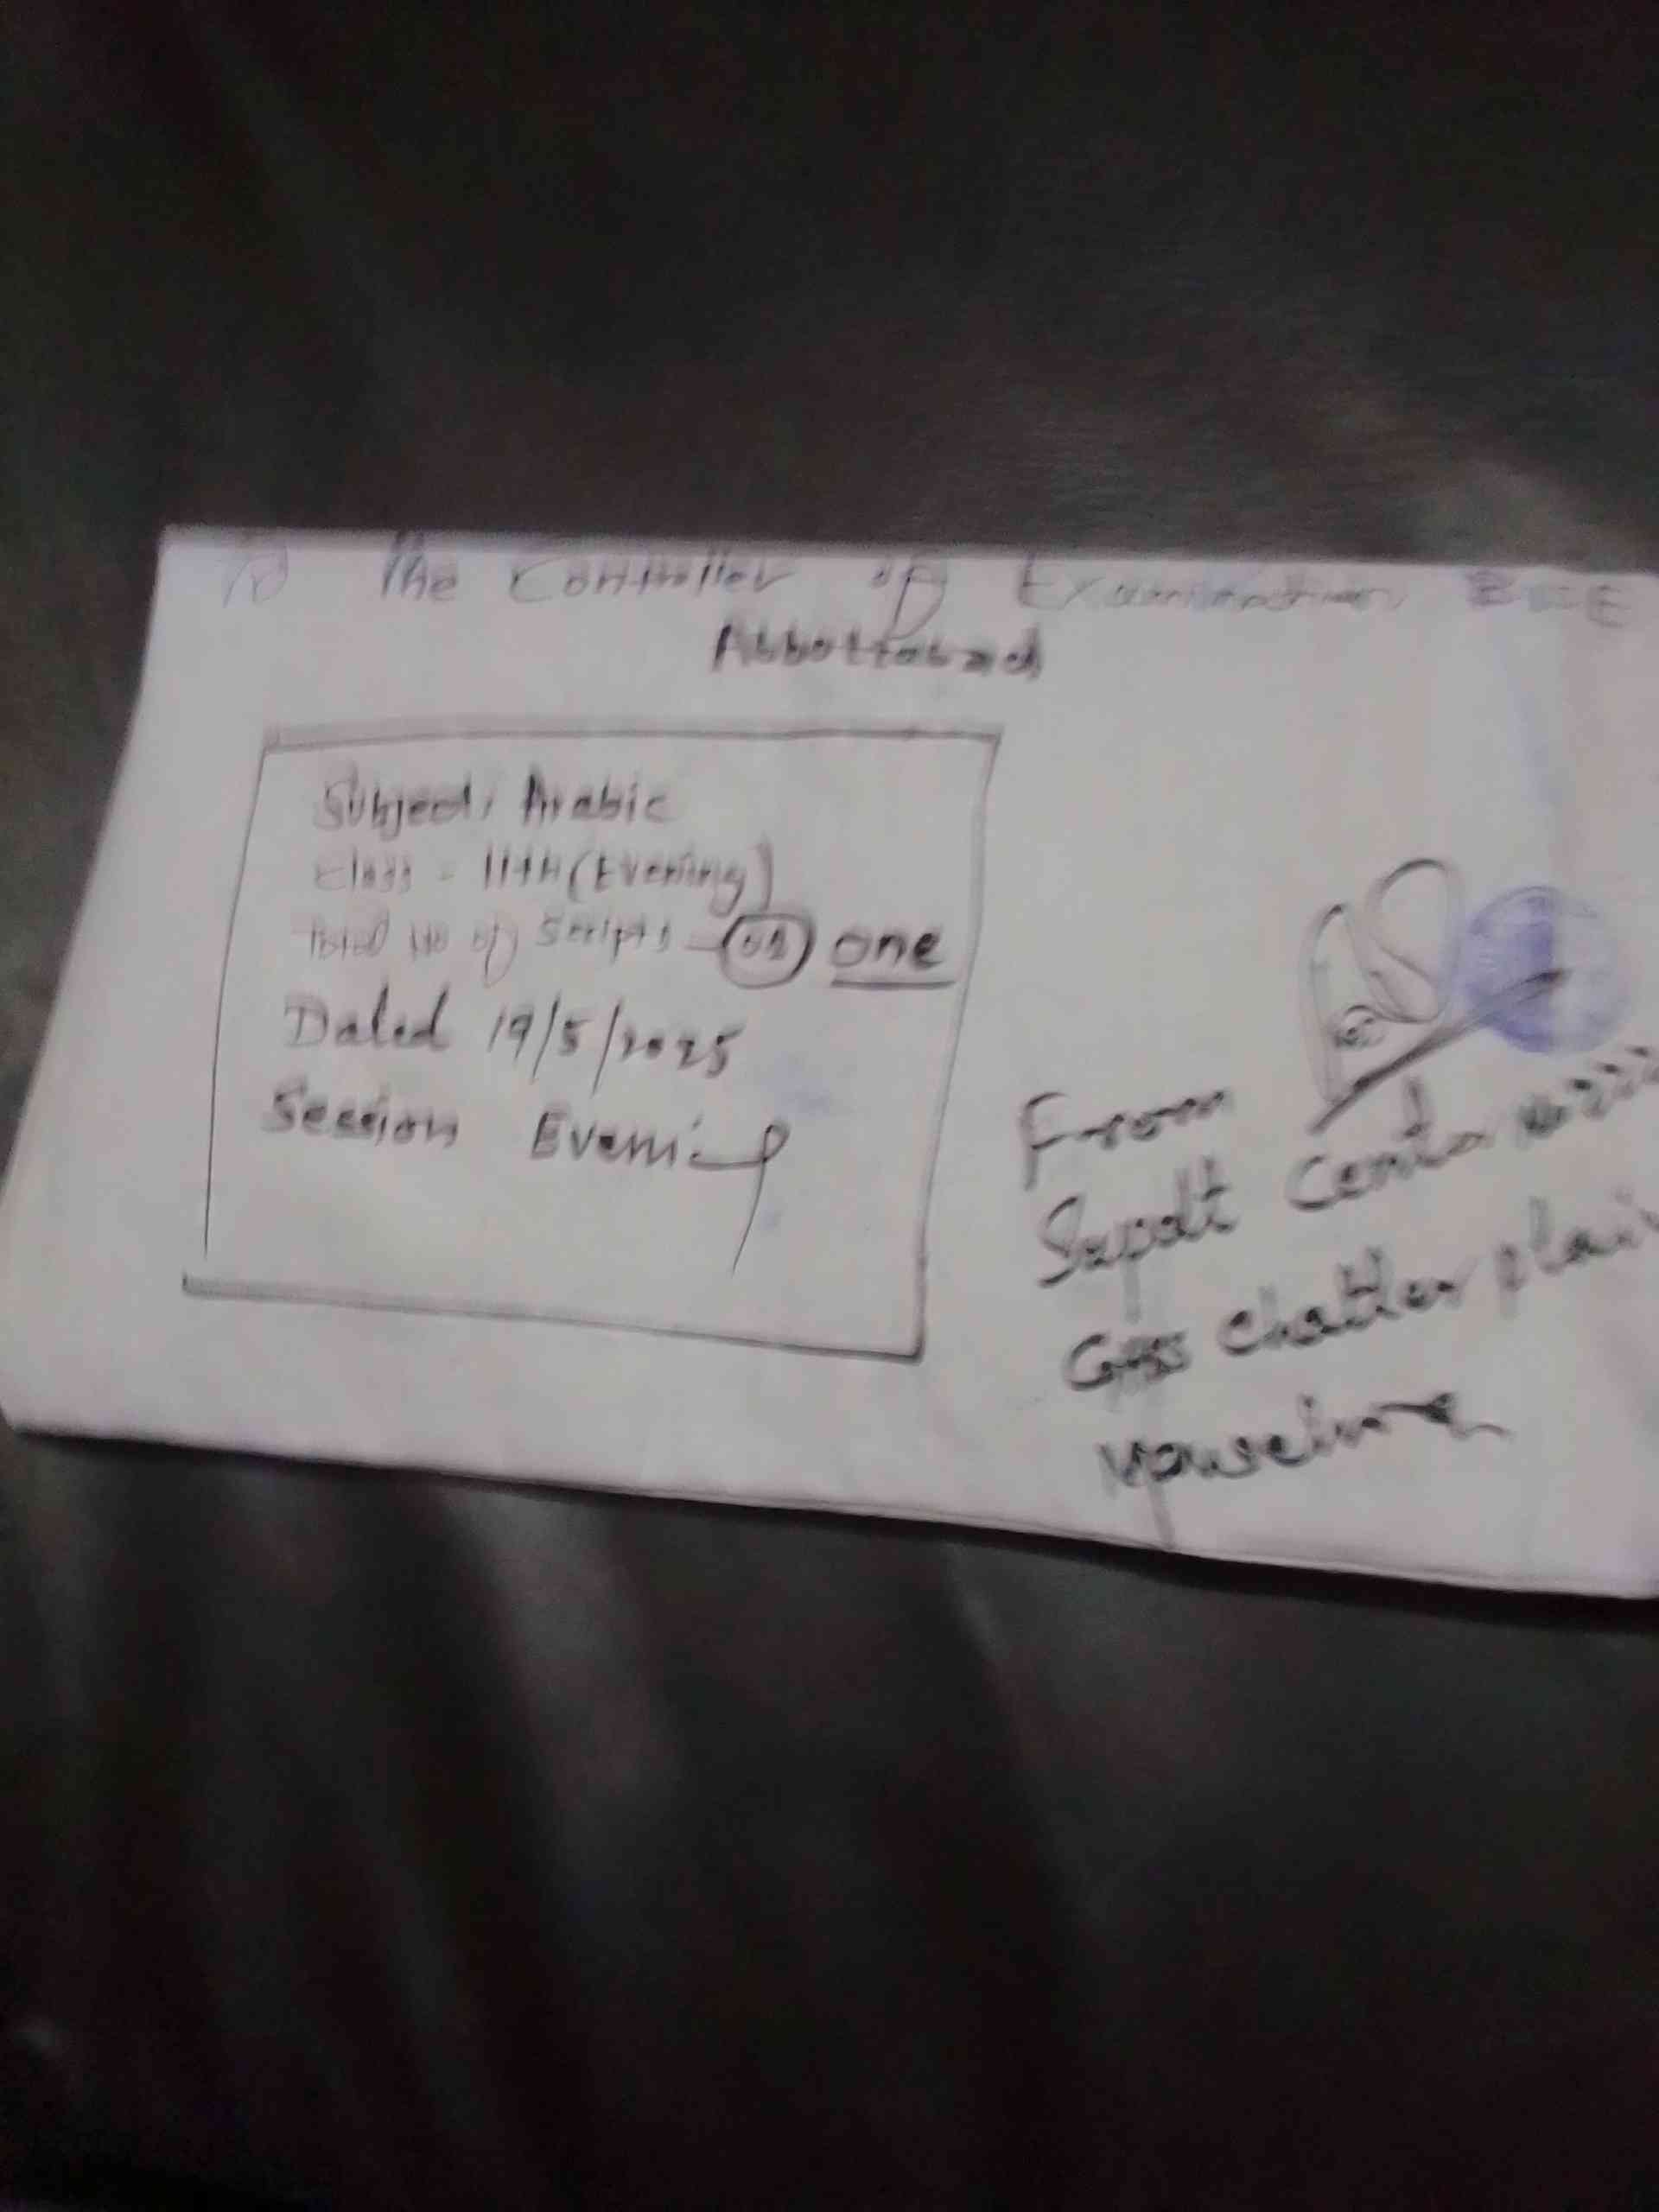 To The Controller of Examination BISE
Abbottabad
Subject: Arabic
Class - 11th (Evening)
Total No of Scripts - 01 one
Dated 19/5/2025
Session Evening
From
Supdt Center No
GHSS Chatter plain
Mansehra